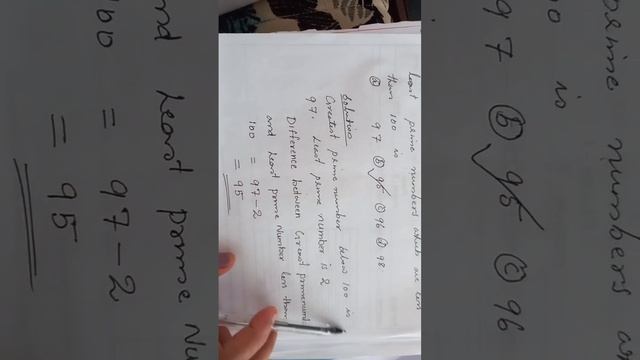 Least prime numbers which are less
than 100 is
ⓐ 97 ⓑ 95 ⓒ 96 ⓓ 98
Solution
Greatest prime number below 100 is
97. Least prime number is 2
Difference between Greatest prime
and Least prime Number less than
100 = 97 - 2
= 95